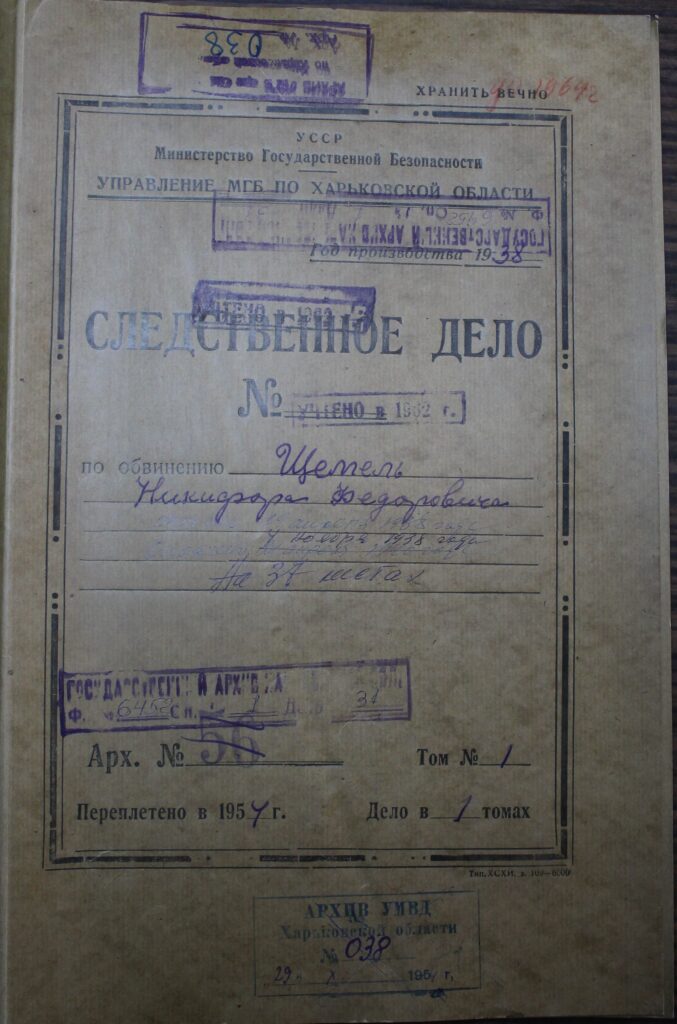 АРХИВ
038
ХРАНИТЬ ВЕЧНО
УССР
Министерство Государственной Безопасности
УПРАВЛЕНИЕ МГБ ПО ХАРЬКОВСКОЙ ОБЛАСТИ
ГОСУДАРСТВЕННЫЙ АРХИВ
Год производства 1938
УЧТЕНО
СЛЕДСТВЕННОЕ ДЕЛО
№ УЧТЕНО в 1962 г.
по обвинению Щемель
Никифора Федоровича
1938 года
ноября 1938 года
На листах
ГОСУДАРСТВЕННЫЙ АРХИВ
Ф. 6452 1
Арх. № 56 Том № 1
Переплетено в 1954 г. Дело в 1 томах
Тип. ХСХИ, з.
АРХИВ УМВД
Харьковской области
№ 038
29 X 195 г.